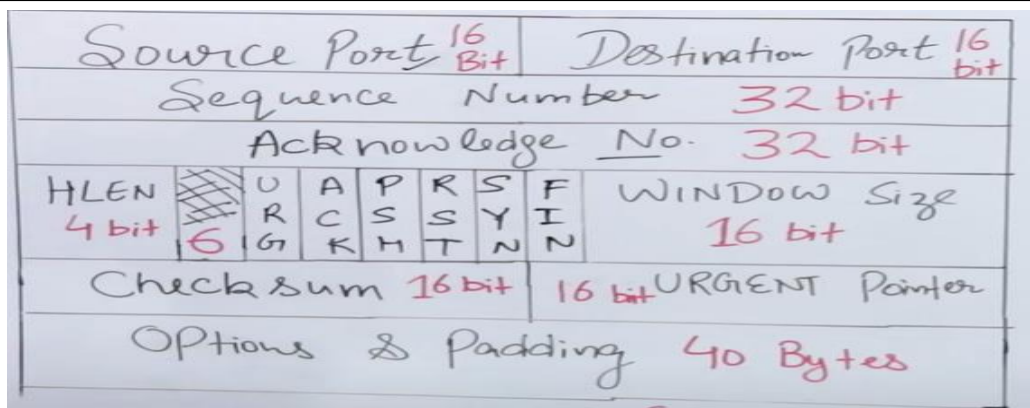 Source Port 16 Bit Destination Port 16 bit
Sequence Number 32 bit
Acknowledge No. 32 bit
HLEN 4 bit 6 URG ACK PSH RST SYN FIN WINDOW Size 16 bit
Checksum 16 bit 16 bit URGENT Pointer
Options & Padding 40 Bytes